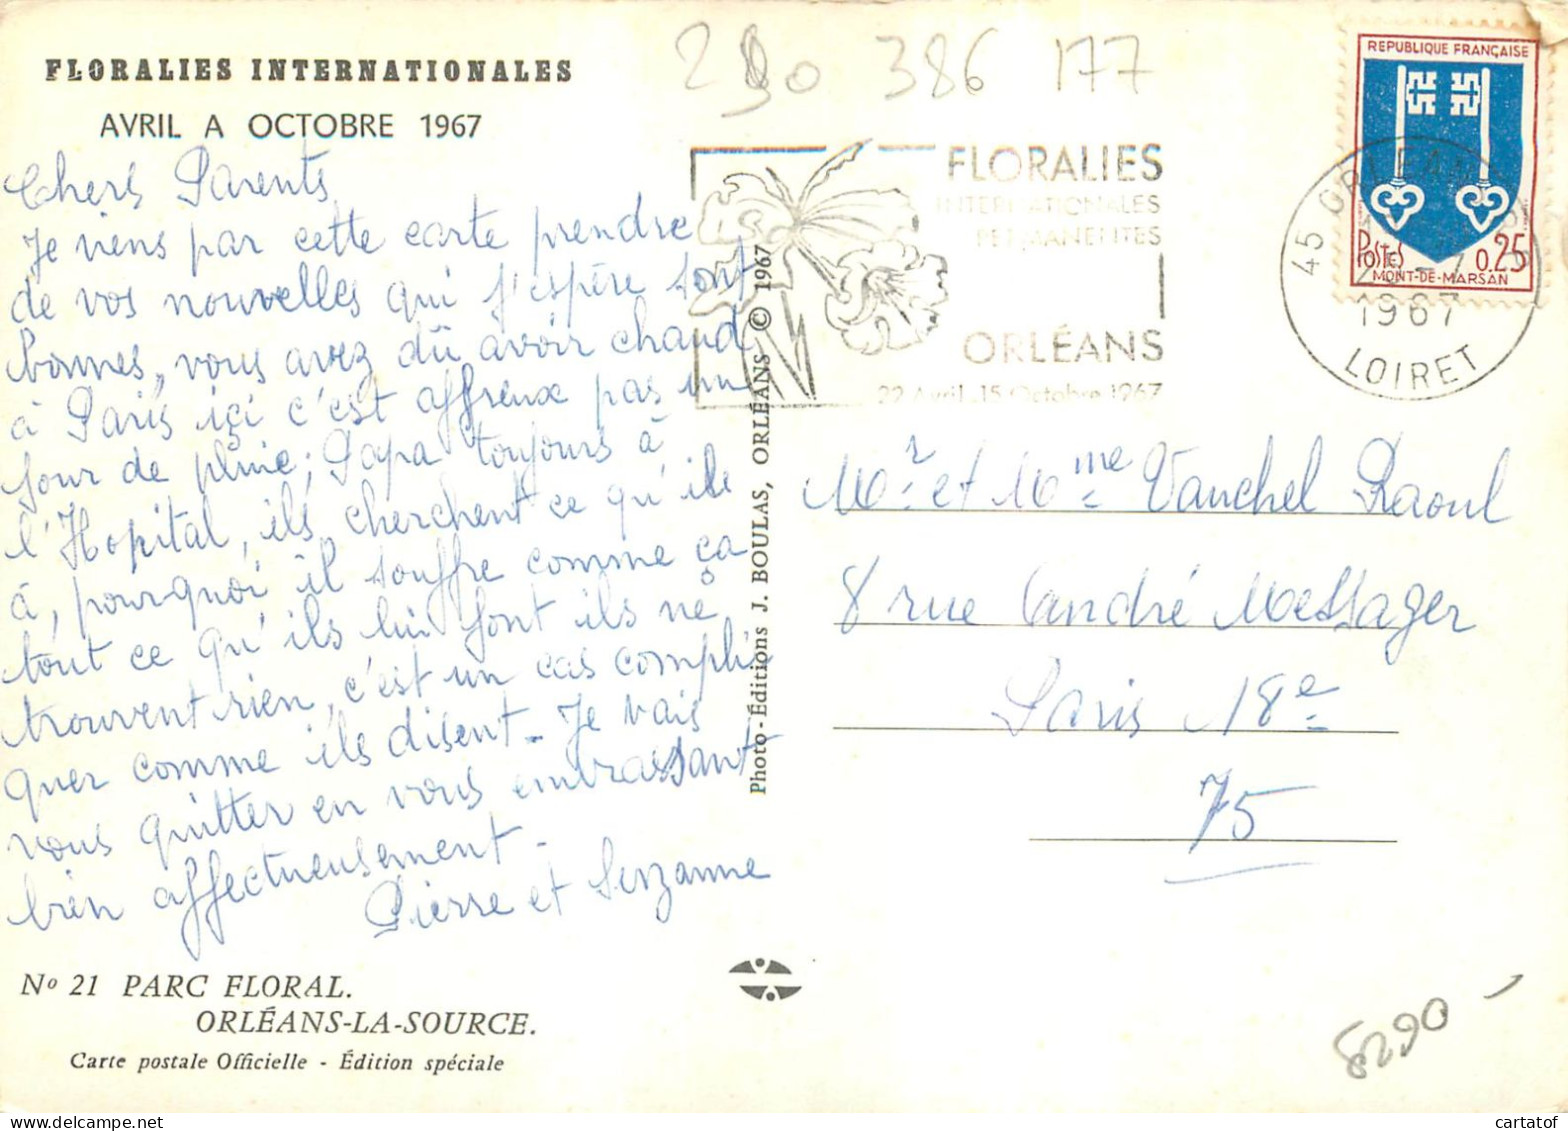 FLORALIES INTERNATIONALES
AVRIL A OCTOBRE 1967
Chers Parents
Je viens par cette carte prendre
de vos nouvelles qui j'espère sont
bonnes, vous avez dû avoir chaud
à Paris içi c'est affreux pas un
jour de pluie; Papa toujours à
l'Hopital, ils cherchent ce qu'ils
à, pourquoi il souffre comme ça
tout ce qu'ils lui font ils ne
trouvent rien, c'est un cas compli
quer comme ils disent - Je vais
vous quitter en vous embrassant
bien affectueusement -
Pierre et Suzanne
No 21 PARC FLORAL.
ORLÉANS-LA-SOURCE.
Carte postale Officielle - Édition spéciale
Photo-Éditions J. BOULAS, ORLÉANS © 1967
386 177
FLORALIES
INTERNATIONALES
PERMANENTES
ORLÉANS
22 Avril -15 Octobre 1967
REPUBLIQUE FRANÇAISE
POSTES 0,25
MONT-DE-MARSAN
45 ORLEANS
1967
LOIRET
Mr et Mme Vauchel Raoul
8 rue André Messager
Paris 18e
75
8290
cartatof